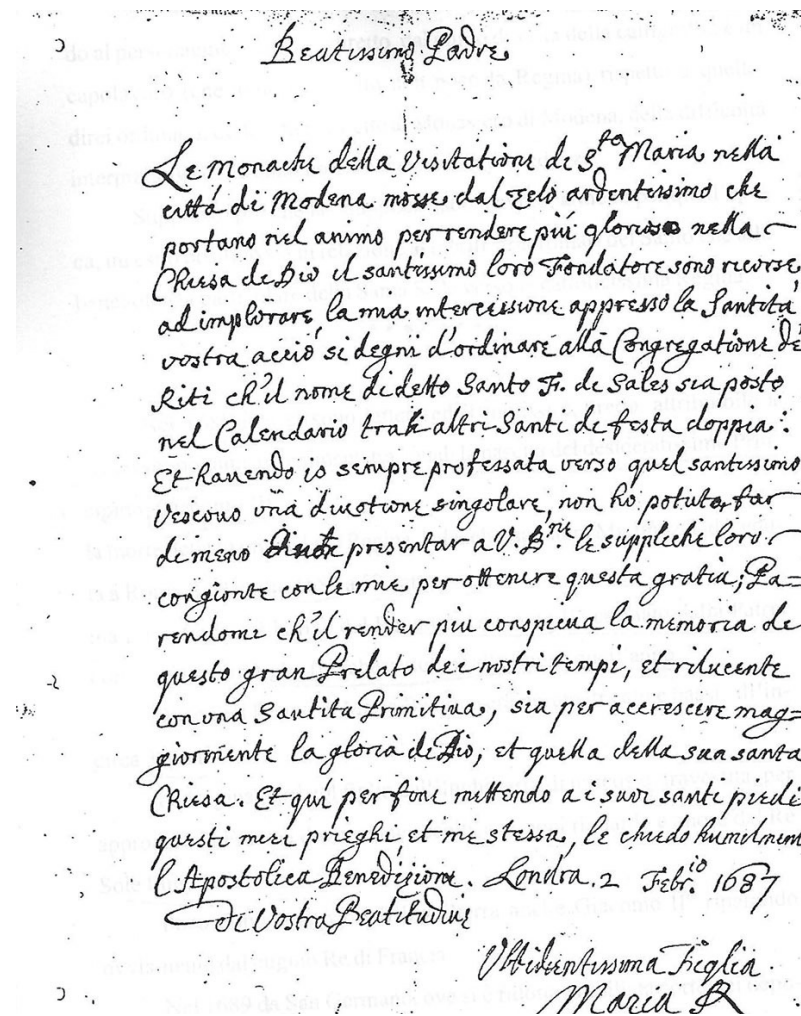 Beatissimo Padre
Le Monache della Visitatione di S.ta Maria nella
città di Modena mosse dal zelo ardentissimo che
portano nel animo per rendere più glorioso nella
Chiesa de Dio il santissimo loro Fondatore sono ricorse
ad implorare la mia intercessione appresso la Santità
vostra acciò si degni d'ordinare alla Congregatione de
Riti ch'il nome di detto Santo Fr. de Sales sia posto
nel Calendario tra altri Santi de festa doppia:
Et havendo io sempre professata verso quel santissimo
Vescovo una divotione singolare, non ho potuto far
di meno presentar a V. B.ne le suppliche loro
congionte con le mie per ottenere questa gratia; Pa=
rendomi ch'il render piu conspicua la memoria de
questo gran Prelato dei nostri tempi, et rilucente
con una Santita Primitiva, sia per accrescere mag=
giormente la gloria di Dio, et quella della sua santa
Chiesa. Et qui per fine mettendo a i suoi santi piedi
questi miei prieghi, et me stessa, le chiedo humilmen
l'Apostolica Benedizione. Londra. 2 Febr.io 1687
Di Vostra Beatitudine
Ubbidientissima Figlia.
Maria R